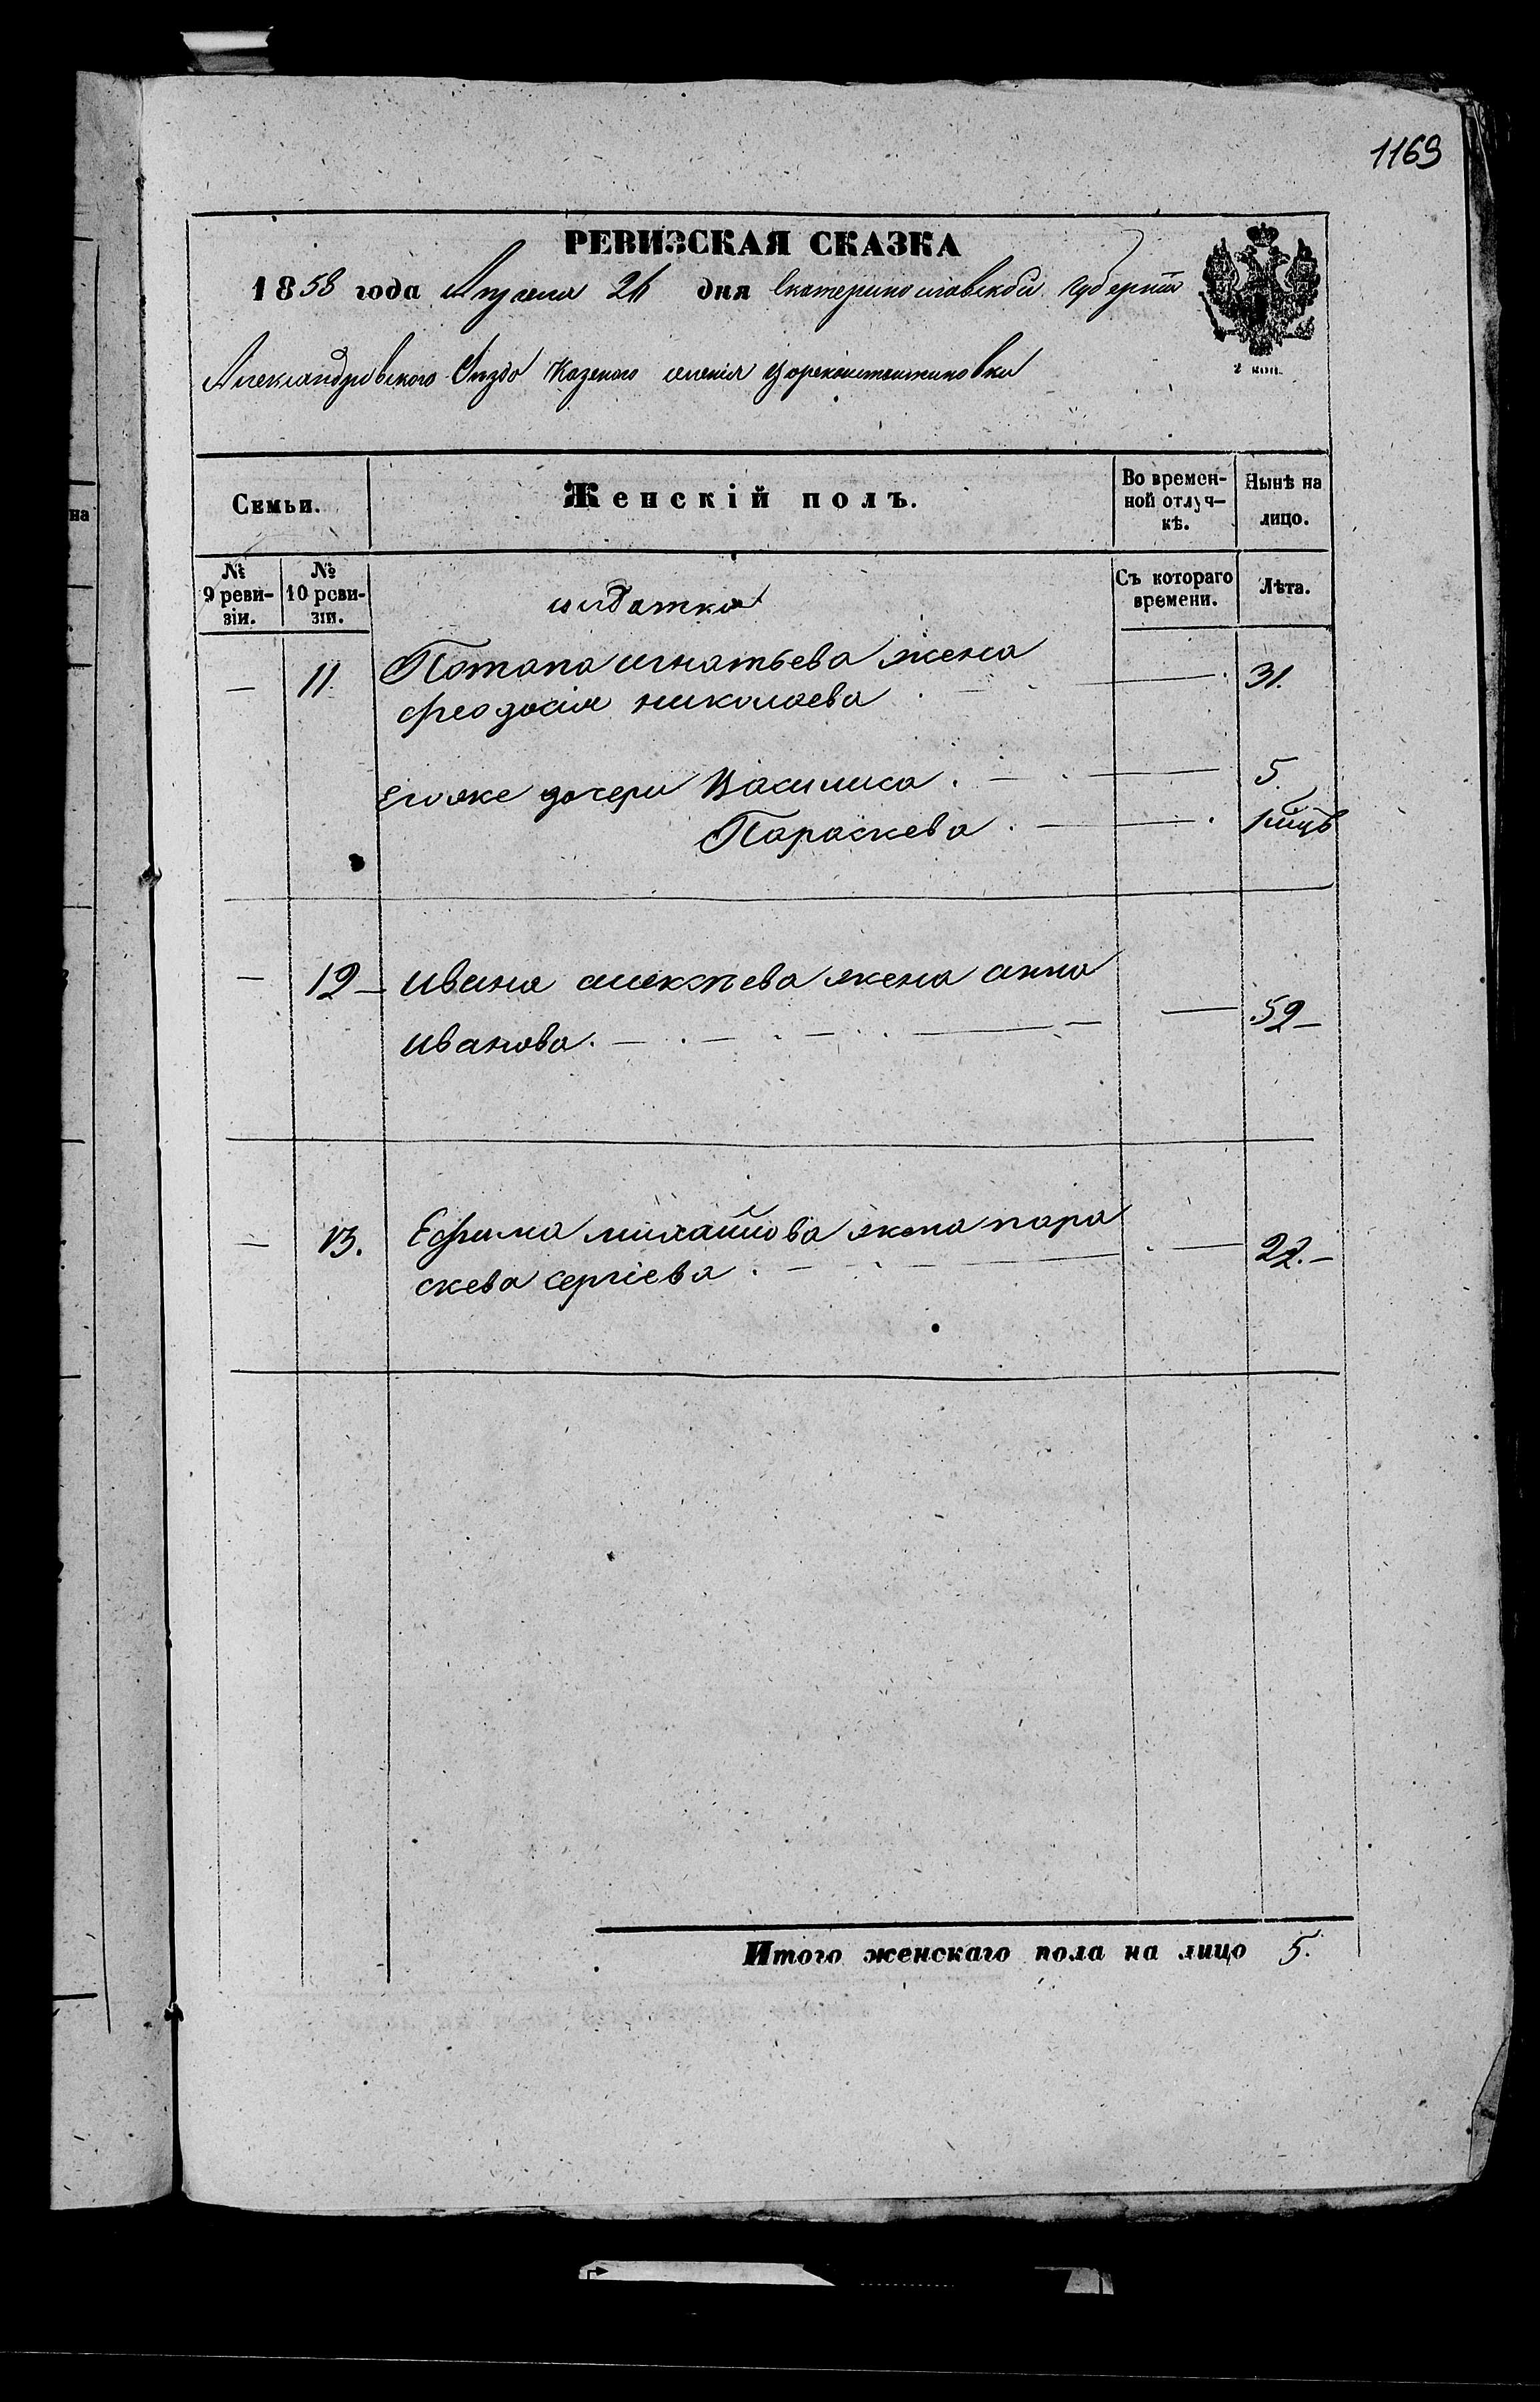 1169
РЕВИЗСКАЯ СКАЗКА
1858 года Апреля 26 дня Екатеринославской губернiи
Александровского Уезда Казеного селенiя Цареконстантиновки
2 коп.
Семьи.
Женскiй полъ.
Во времен-
ной отлуч-
кѣ.
Нынѣ на
лицо.
№
9 реви-
зiи.
№
10 реви-
зiи.
Съ котораго
времени.
Лѣта.
солдатки
— 11 Потапа игнатьева жена
феодосия николаева — 31.
Егоже дочери Василиса — 5.
Параскева — 1 мцъ
— 12 Ивана алексеева жена анна
иванова — 52
— 13. Ефима михайлова жена пара
скева сергiева — 22.
Итого женскаго пола на лицо 5.
на